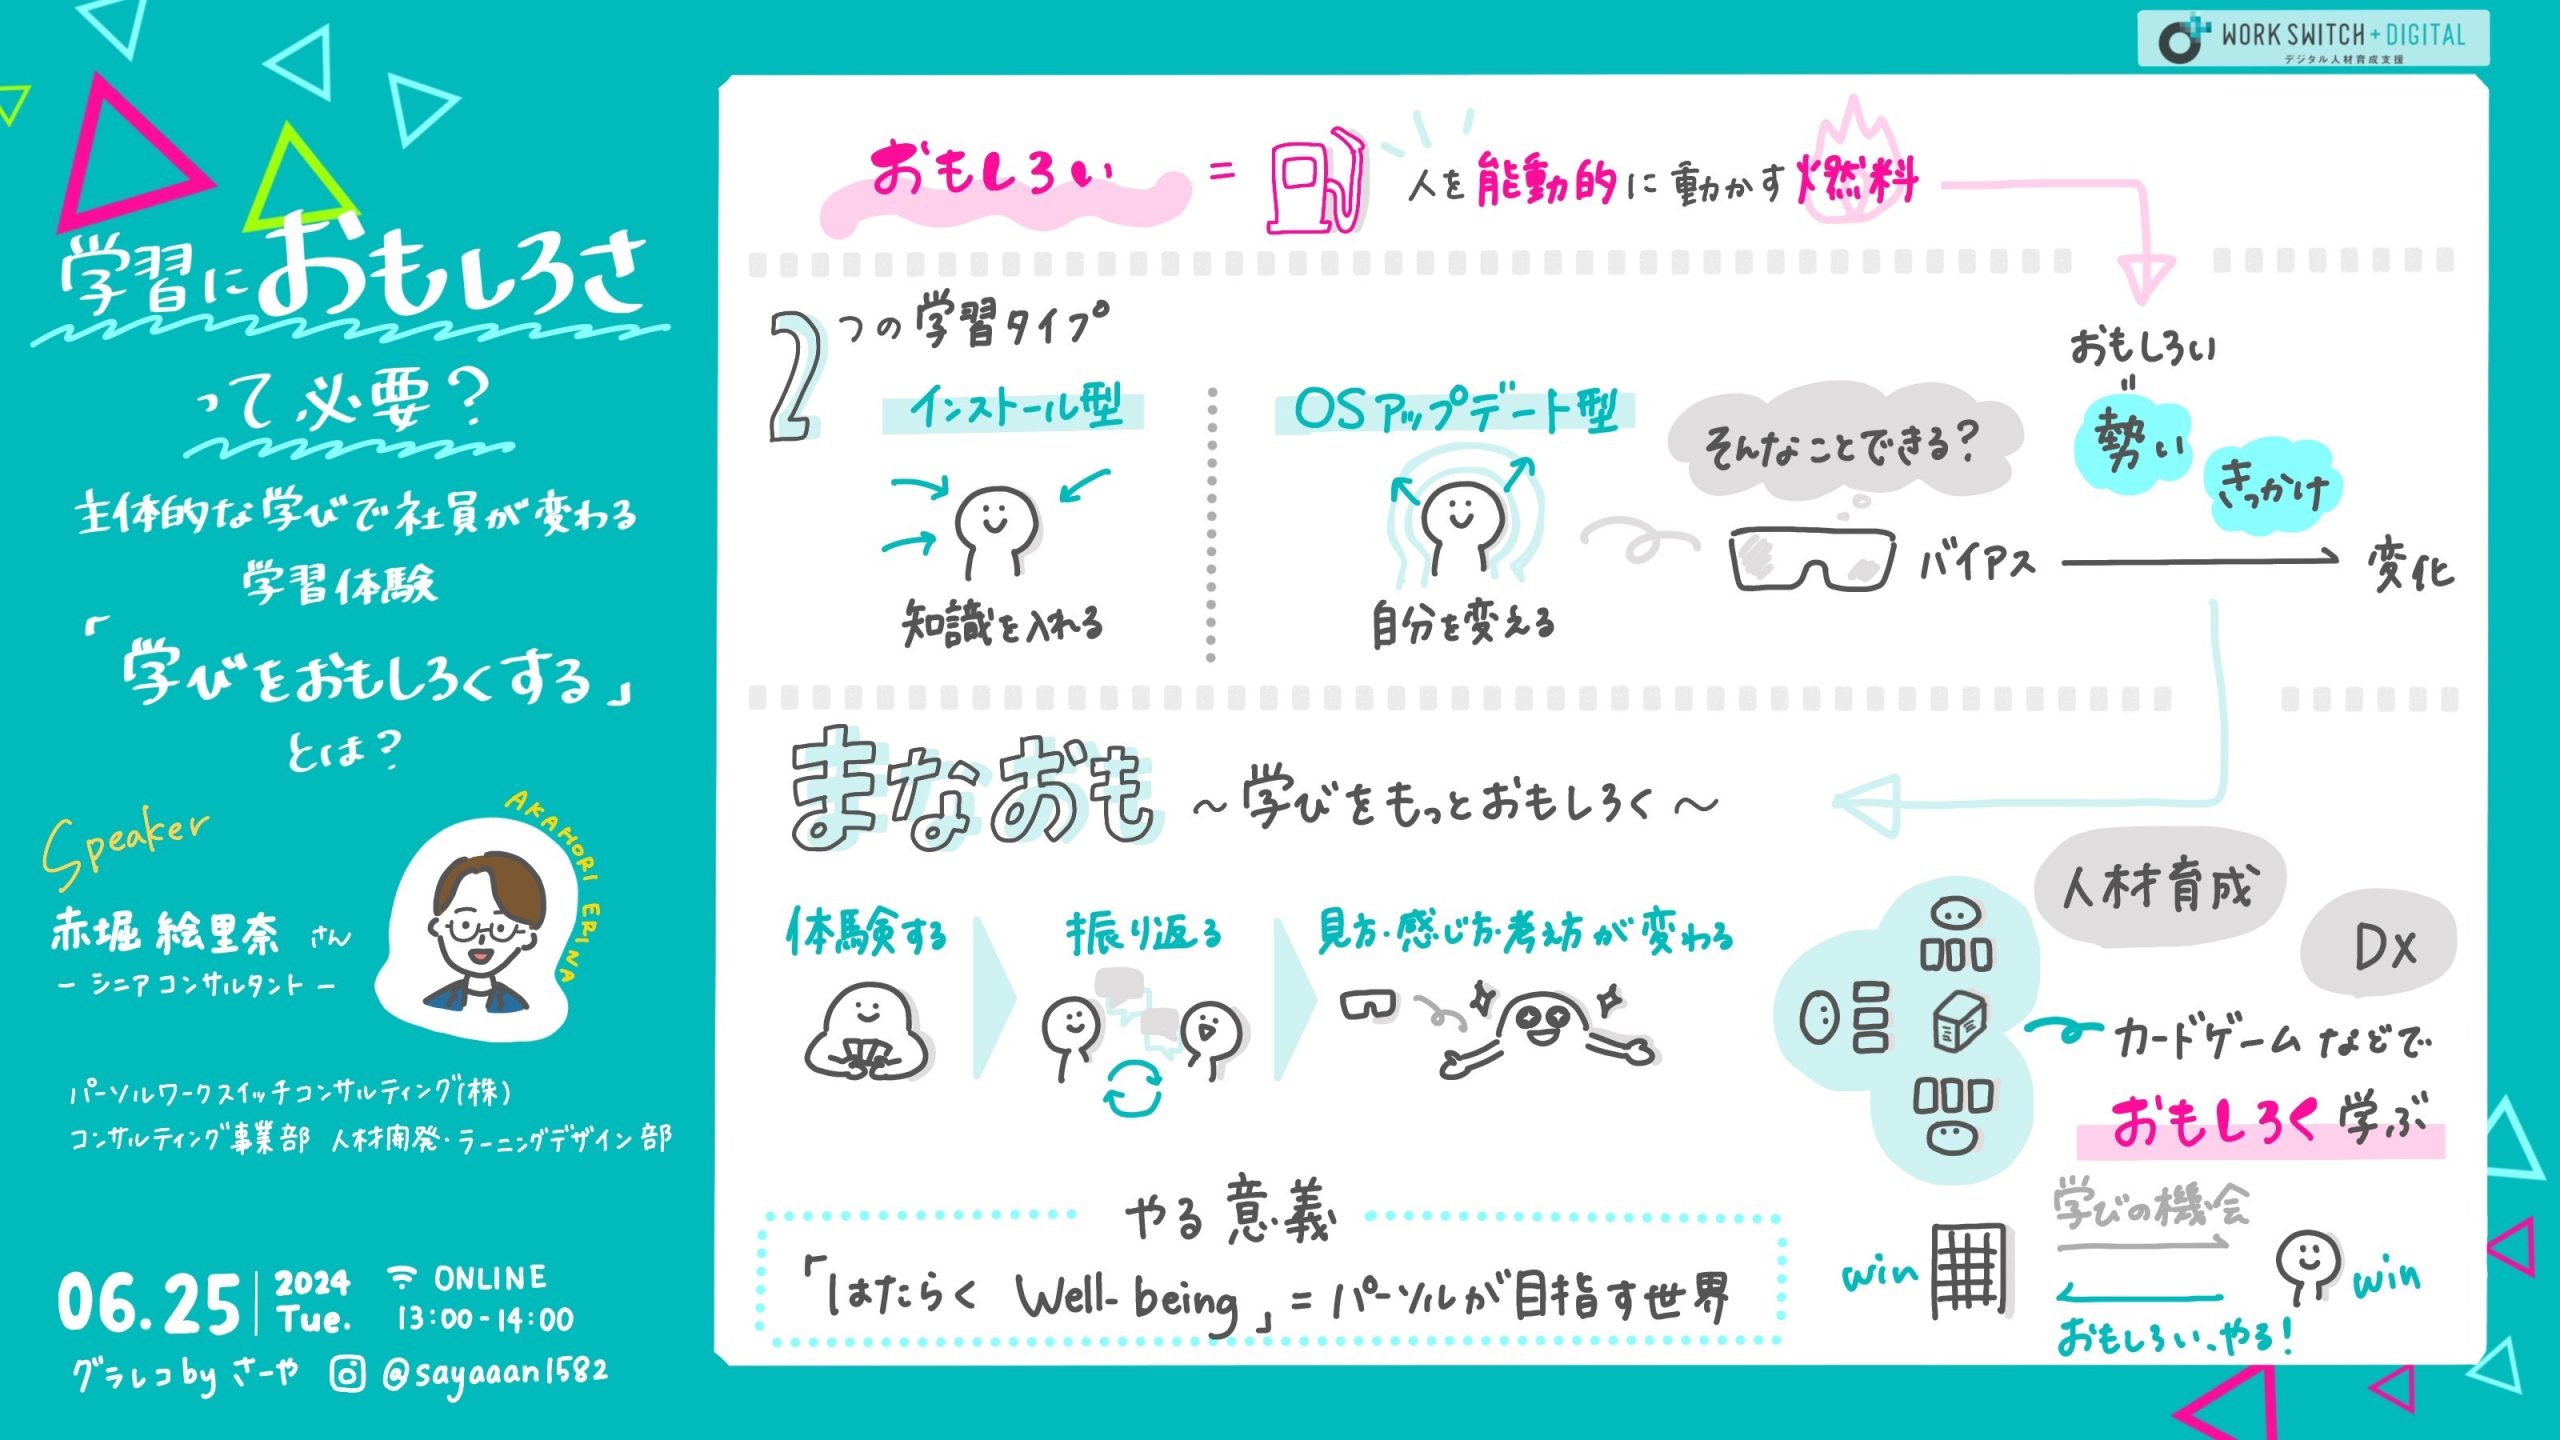 学習におもしろさ
って必要？
主体的な学びで社員が変わる
学習体験
「学びをおもしろくする」
とは？
Speaker
AKAHORI ERINA
赤堀 絵里奈 さん
- シニアコンサルタント -
パーソルワークスイッチコンサルティング(株)
コンサルティング事業部 人材開発・ラーニングデザイン部
06.25
2024
Tue.
ONLINE
13:00-14:00
グラレコ by さーや @sayaaan1582
WORK SWITCH + DIGITAL
デジタル人材育成支援
おもしろい = 人を能動的に動かす燃料
2つの学習タイプ
インストール型
知識を入れる
OSアップデート型
自分を変える
そんなことできる？
バイアス
おもしろい
=
勢い
きっかけ
変化
まなおも ～学びをもっとおもしろく～
体験する
振り返る
見方・感じ方・考え方が変わる
人材育成
DX
カードゲームなどで
おもしろく学ぶ
やる意義
「はたらく Well-being」= パーソルが目指す世界
学びの機会
win
win
おもしろい、やる！